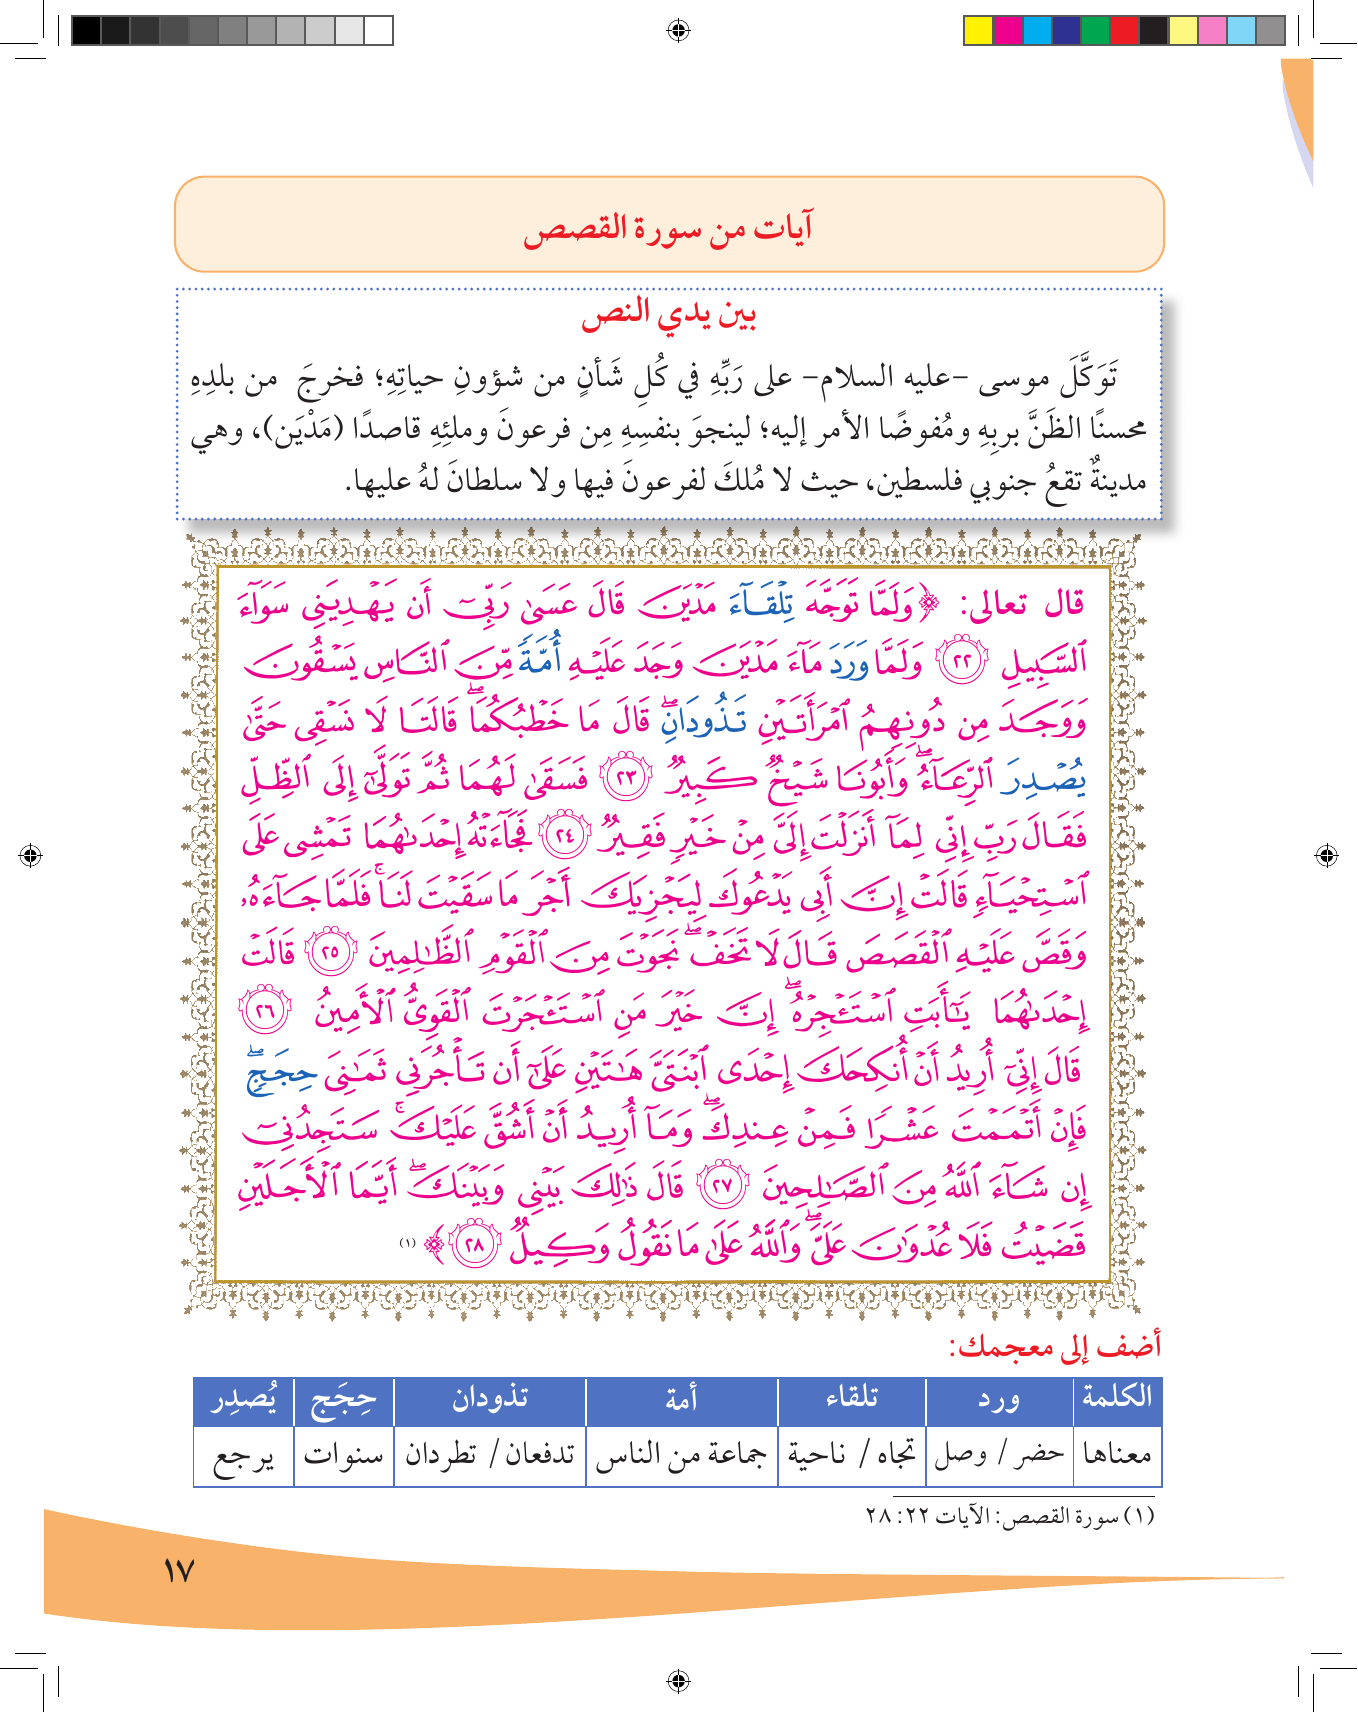 آيات من سورة القصص
بين يدي النص
تَوَكَّلَ موسى -عليه السلام- على رَبِّهِ في كُلِ شَأنٍ من شؤونِ حياتِهِ؛ فخرجَ من بلدِهِ
محسنًا الظَنَّ بربِهِ ومُفوضًا الأمر إليه؛ لينجوَ بنفسِهِ مِن فرعونَ وملئِهِ قاصدًا (مَدْيَن)، وهي
مدينةٌ تقعُ جنوبي فلسطين، حيث لا مُلكَ لفرعونَ فيها ولا سلطانَ لهُ عليها.
قال تعالى: ﴿وَلَمَّا تَوَجَّهَ تِلۡقَآءَ مَدۡيَنَ قَالَ عَسَىٰ رَبِّيٓ أَن يَهۡدِيَنِي سَوَآءَ
ٱلسَّبِيلِ ٢٢ وَلَمَّا وَرَدَ مَآءَ مَدۡيَنَ وَجَدَ عَلَيۡهِ أُمَّةٗ مِّنَ ٱلنَّاسِ يَسۡقُونَ
وَوَجَدَ مِن دُونِهِمُ ٱمۡرَأَتَيۡنِ تَذُودَانِۖ قَالَ مَا خَطۡبُكُمَاۖ قَالَتَا لَا نَسۡقِي حَتَّىٰ
يُصۡدِرَ ٱلرِّعَآءُۖ وَأَبُونَا شَيۡخٞ كَبِيرٞ ٢٣ فَسَقَىٰ لَهُمَا ثُمَّ تَوَلَّىٰٓ إِلَى ٱلظِّلِّ
فَقَالَ رَبِّ إِنِّي لِمَآ أَنزَلۡتَ إِلَيَّ مِنۡ خَيۡرٖ فَقِيرٞ ٢٤ فَجَآءَتۡهُ إِحۡدَىٰهُمَا تَمۡشِي عَلَى
ٱسۡتِحۡيَآءٖ قَالَتۡ إِنَّ أَبِي يَدۡعُوكَ لِيَجۡزِيَكَ أَجۡرَ مَا سَقَيۡتَ لَنَاۚ فَلَمَّا جَآءَهُۥ
وَقَصَّ عَلَيۡهِ ٱلۡقَصَصَ قَالَ لَا تَخَفۡۖ نَجَوۡتَ مِنَ ٱلۡقَوۡمِ ٱلظَّٰلِمِينَ ٢٥ قَالَتۡ
إِحۡدَىٰهُمَا يَٰٓأَبَتِ ٱسۡتَـٔۡجِرۡهُۖ إِنَّ خَيۡرَ مَنِ ٱسۡتَـٔۡجَرۡتَ ٱلۡقَوِيُّ ٱلۡأَمِينُ ٢٦
قَالَ إِنِّيٓ أُرِيدُ أَنۡ أُنكِحَكَ إِحۡدَى ٱبۡنَتَيَّ هَٰتَيۡنِ عَلَىٰٓ أَن تَأۡجُرَنِي ثَمَٰنِيَ حِجَجٖۖ
فَإِنۡ أَتۡمَمۡتَ عَشۡرٗا فَمِنۡ عِندِكَۖ وَمَآ أُرِيدُ أَنۡ أَشُقَّ عَلَيۡكَۚ سَتَجِدُنِيٓ
إِن شَآءَ ٱللَّهُ مِنَ ٱلصَّٰلِحِينَ ٢٧ قَالَ ذَٰلِكَ بَيۡنِي وَبَيۡنَكَۖ أَيَّمَا ٱلۡأَجَلَيۡنِ
قَضَيۡتُ فَلَا عُدۡوَٰنَ عَلَيَّۖ وَٱللَّهُ عَلَىٰ مَا نَقُولُ وَكِيلٞ ٢٨﴾ (١)
أضف إلى معجمك:
الكلمة ورد تلقاء أمة تذودان حِجَج يُصدِر
معناها حضر / وصل تجاه / ناحية جماعة من الناس تدفعان / تطردان سنوات يرجع
(١) سورة القصص: الآيات ٢٢: ٢٨
١٧